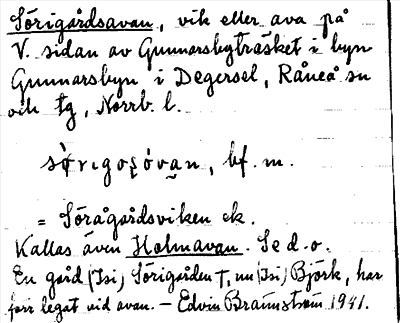 Sörigårdsavan, vik eller ava på
V. sidan av Gunnarsbyträsket i byn
Gunnarsbyn i Degersel, Råneå sn
och tg, Norrb. l.
bf. m.
= Sörågårdsviken ek.
Kallas även Holmavan. Se d. o.
En gård (Isi) Sörigården †, nu (Isi) Björk, har
förr legat vid avan. – Edvin Brännström 1941.